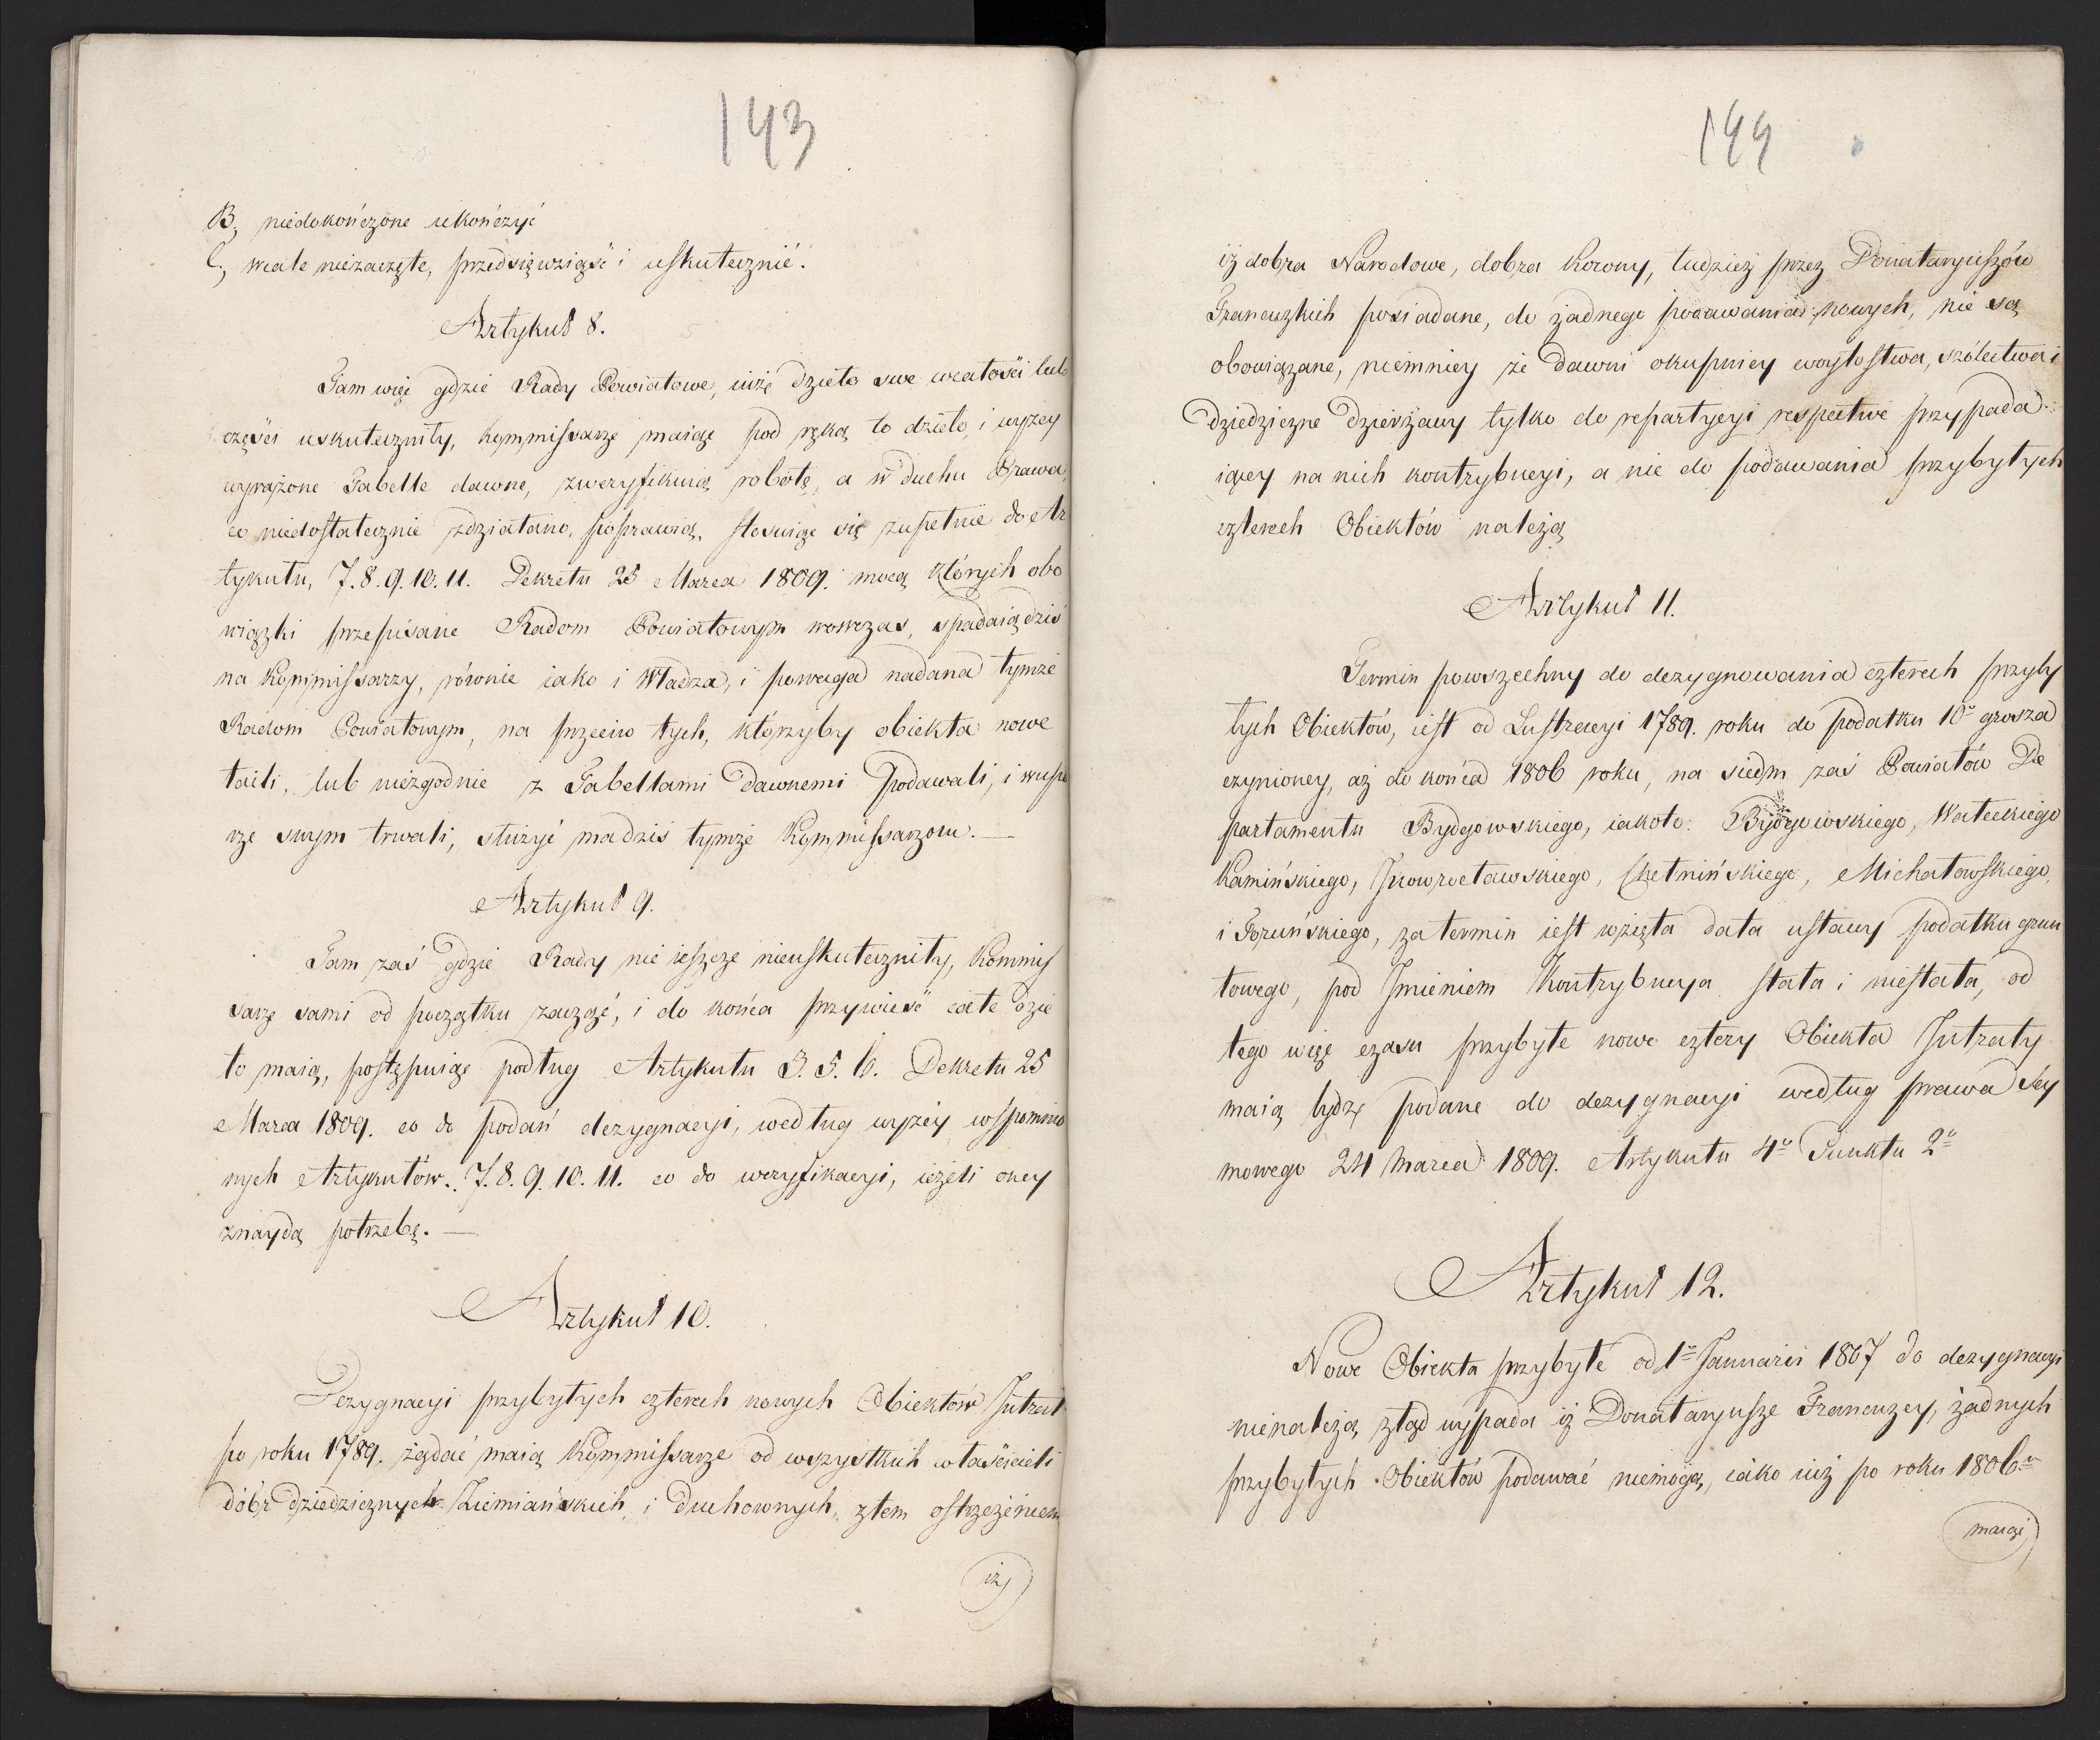 143
B, niedokończone ukończyć
C, wcale niezaczęte, przedsięwziąść i uskutecznić.
Artykuł 8.
Tam więc gdzie Rady Powiatowe, iuże dzieło swe wcałości lub
części uskuteczniły, Kommissarze maiąc pod ręką to dzieło, i wyżey
wyrażone Tabelle dawne, zweryfikuią robotę, a w duchu Prawa
co niedostatecznie zdziałano, poprawią, stosuiąc się zupełnie do Ar
tykułu, 7. 8. 9. 10. 11. Dekretu 25 Marca 1809. mocą których obo
wiązki przepisane Radom Powiatowym wowczas, spadaią dziś
na Kommissarzy, równie iako i Władza, i powaga nadana tymże
Radom Powiatowym, na przeciw tych, którzyby obiekta nowe
taili, lub niezgodnie z Tabellami dawnemi podawali, i wupo
rze swym trwali, służyć ma dziś tymże Kommissarzom. —
Artykuł 9.
Tam zaś gdzie Rady nic ieszcze nieuskuteczniły, Kommis
sarze sami od początku zacząć, i do końca przywieść całe dzie
ło maią, postępuiąc podług Artykułu 3. 5. 6. Dekretu 25
Marca 1809. co do podań dezygnacyi, według wyżey wspomnio
nych Artykułów. 7. 8. 9. 10. 11. co do weryfikacyi, ieżeli oney
znaydą potrzebę. —
Artykuł 10.
Dezygnacyi przybytych czterech nowych Obiektów Intrat
po roku 1789. żądać maią Kommissarze od wszystkich właścicieli
dóbr dziedzicznych Ziemiańskich, i Duchownych, z tem ostrzeżeniem
iż
144
iż dobra Narodowe, dobra Korony, tudzież przez Donataryuszów
Francuzkich posiadane, do żadnego podawania nowych, nie są
obowiązane, niemniey że dawni okupnicy woytostwa, szólectwa i
dziedziczne dzierżawy tylko do repartycyi respective przypada
iącey na nich kontrybucyi, a nie do podawania przybytych
czterech Obiektów należą
Artykuł 11.
Termin powszechny do dezygnowania czterech przyby
tych Obiektów, iest od Lustracyi 1789. roku do podatku 10º grosza
czynioney, aż do końca 1806 roku, na siedm zaś Powiatów De
partamentu Bydgowskiego, iakoto: Bydgowskiego, Wałeckiego
Kamińskiego, Inowrocławskiego, Chełmińskiego, Michałowskiego,
i Toruńskiego, za termin iest wzięta data ustawy podatku grun
towego, pod Imieniem Kontrybucya stała i niestała, od
tego więc czasu przybyłe nowe cztery Obiekta Intraty
maią bydź podane do dezygnacyi według prawa Sey
mowego 24 Marca 1809. Artykułu 4º Punktu 2º
Artykuł 12.
Nowe Obiekta przybyłe od 1º Januarii 1807 do dezygnacyi
nienależą, ztąd wypada iż Donataryusze Francuzcy, żadnych
przybytych Obiektów podawać niemogą, iako iuż po roku 1806º
maiąc